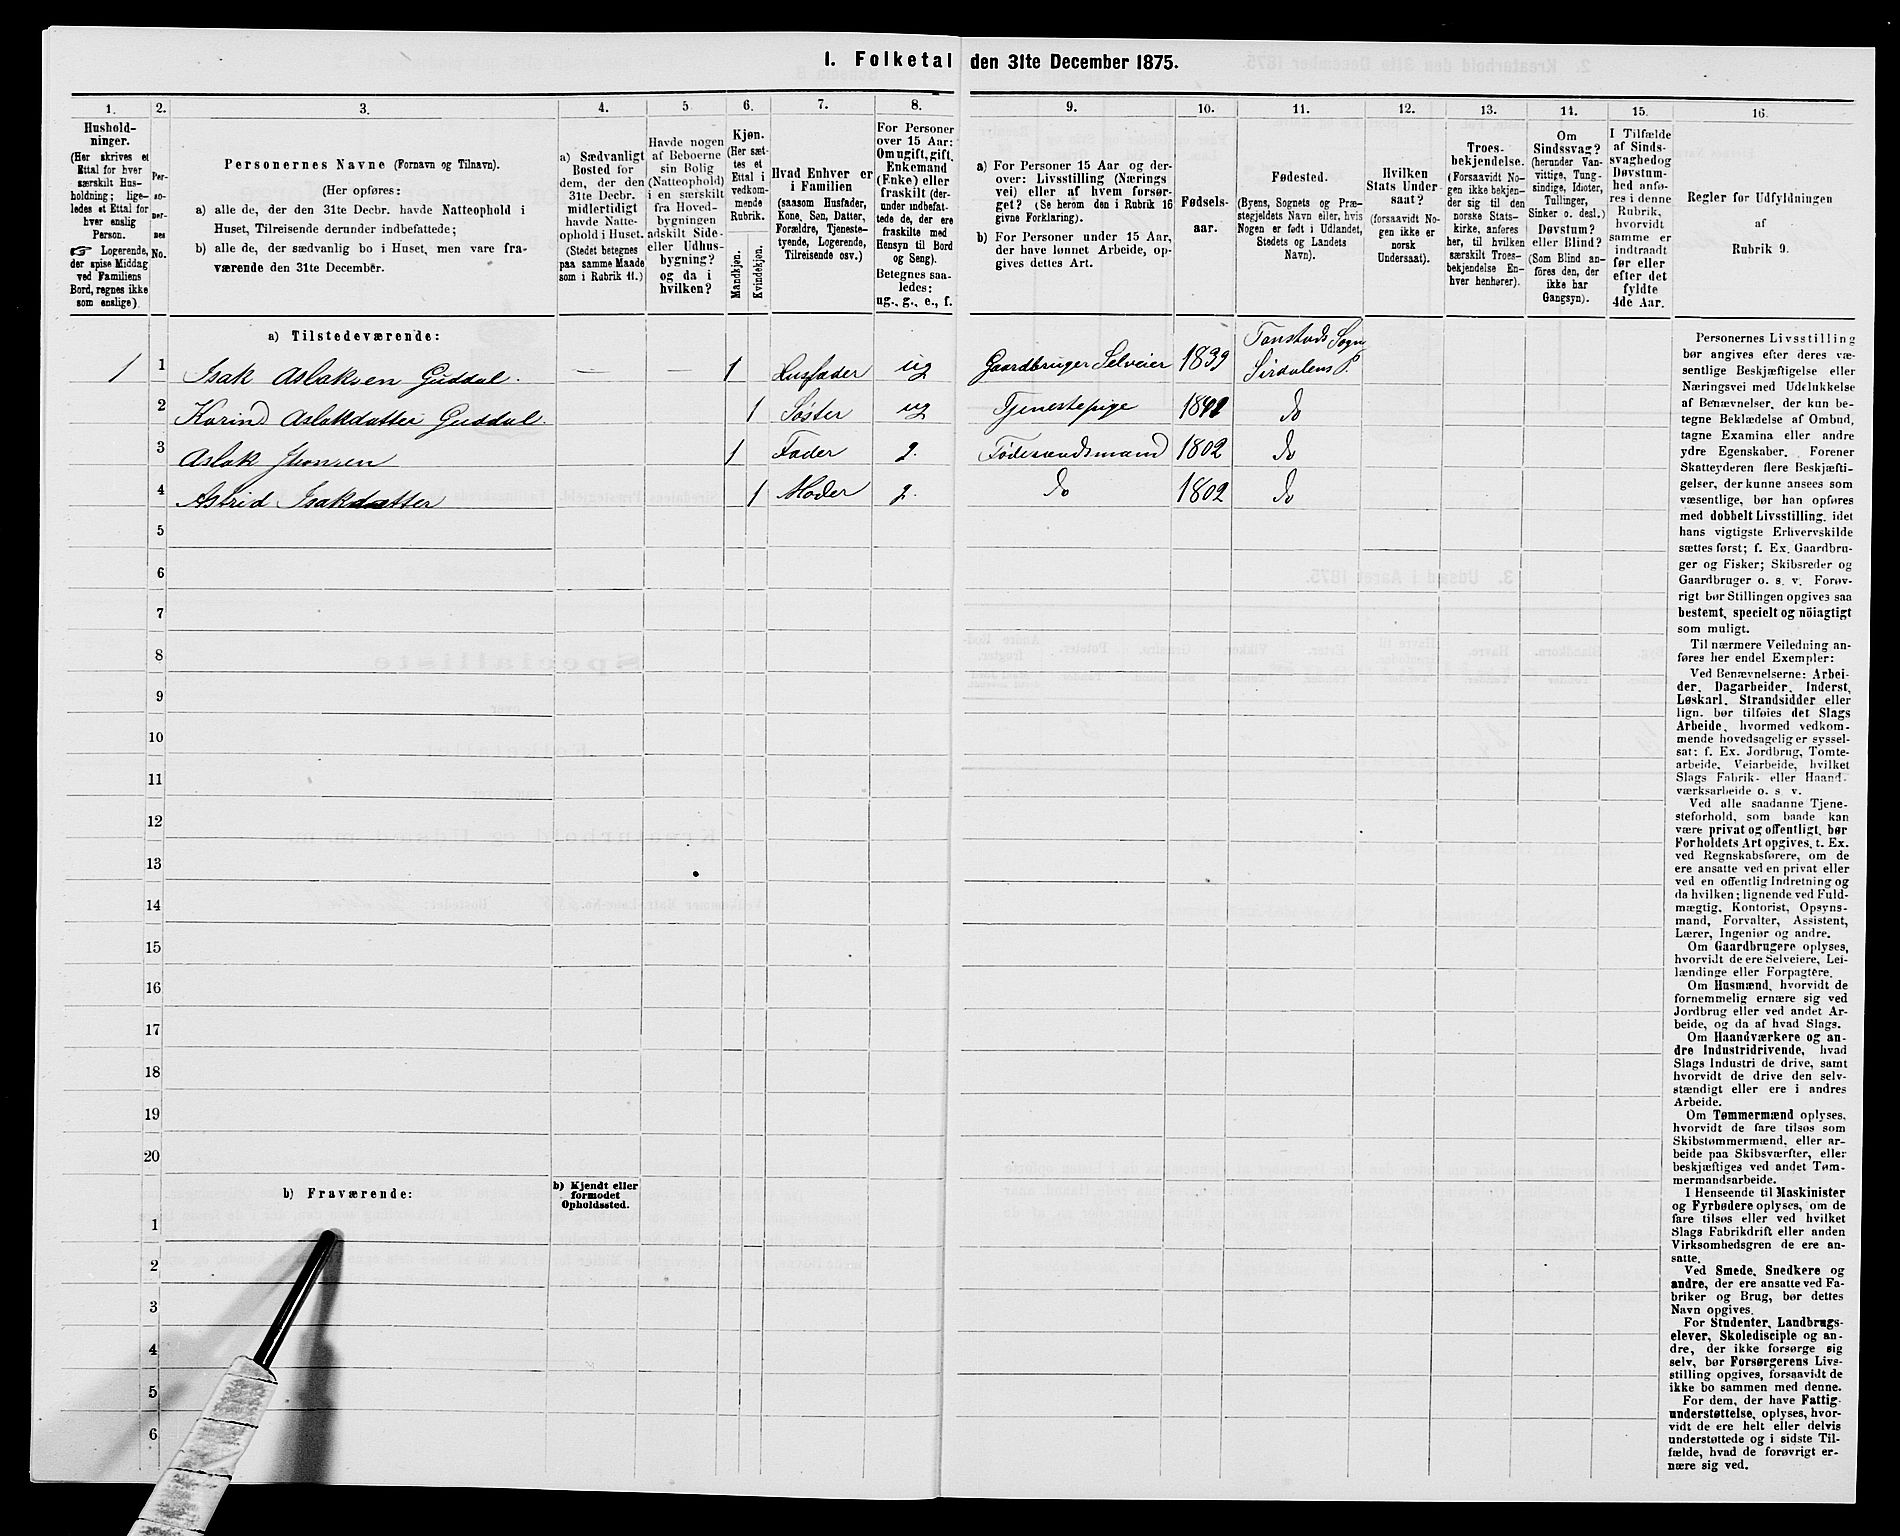 I. Folketal den 31te December 1875.
1.
Hushold-
ninger.
(Her skrives et
Ettal for hver
særskilt Hus-
holdning; lige-
ledes et Ettal for
hver enslig
Person.
☞ Logerende,
der spise Middag
ved Familiens
Bord, regnes ikke
som enslige).
2.
Per-
so-
ner-
nes
No.
3.
Personernes Navne (Fornavn og Tilnavn).
(Her opføres:
a) alle de, der den 31te Decbr. havde Natteophold i
Huset, Tilreisende derunder indbefattede;
b) alle de, der sædvanlig bo i Huset, men vare fra-
værende den 31te December.
4.
a) Sædvanligt
Bosted for
dem, der den
31te Decbr.
midlertidigt
havde Natte-
ophold i Huset.
(Stedet betegnes
paa samme Maade
som i Rubrik 11.)
5
Havde nogen
af Beboerne
sin Bolig
(Natteophold)
i en særskilt
fra Hoved-
bygningen
adskilt Side-
eller Udhus-
bygning?
og da i
hvilken?
6.
Kjøn.
(Her sæt-
tes et
Ettal i
vedkom-
mende
Rubrik.
Mandkjøn.
Kvindekjøn.
7.
Hvad Enhver er
i Familien
(saasom Husfader,
Kone, Søn, Datter,
Forældre, Tjeneste-
tyende, Logerende,
Tilreisende osv.)
8.
For Personer
over 15 Aar:
Om ugift, gift,
Enkemand
(Enke) eller
fraskilt (der-
under indbefat-
tede de, der ere
fraskilte med
Hensyn til Bord
og Seng).
Betegnes saa-
ledes:
ug., g., e., f.
9.
a) For Personer 15 Aar og der-
over: Livsstilling (Nærings
vei) eller af hvem forsør-
get? (Se herom den i Rubrik 16
givne Forklaring).
b) For Personer under 15 Aar,
der have lønnet Arbeide, op-
gives dettes Art.
10.
Fødsels-
aar.
11.
Fødested.
(Byens, Sognets og Præ-
stegjeldets Navn eller, hvis
Nogen er født i Udlandet,
Stedets og Landets
Navn).
12.
Hvilken
Stats Under-
saat?
(forsaavidt No-
gen ikke er
norsk
Undersaat).
13.
Troes-
bekjendelse.
(Forsaavidt No-
gen ikke bekjen-
der sig til den
norske Stats-
kirke, anføres
her, til hvilken
særskilt Troes-
bekjendelse En-
hver henhører).
14.
Om
Sindssvag?
(herunder Van-
vittige, Tung-
sindige, Idioter,
Tullinger,
Sinker o. desl.)
Døvstum?
eller Blind?
(Som Blind an-
føres den, der
ikke har
Gangsyn).
15.
I Tilfælde
af Sinds-
svaghed og
Døvstum-
hed anfø-
res i denne
Rubrik,
hvorvidt
samme er
indtraadt
før eller
efter det
fyldte
4de Aar.
16.
Regler for Udfyldningen
af
Rubrik 9.
a) Tilstedeværende:
1 1 Isak Aslaksen Guddal. — — 1 Husfader ug Gaardbruger Selveier 1839 Tonstads Sogn Sirdalens P.
2 Karine Aslakdatter Guddal. 1 Søster ug Tjenestepige 1842 do
3 Aslak Jhonsen 1 Fader g. Føderaadsmand 1802 do
4 Astrid Isakdatter 1 Moder g. do 1802 do
5
6
7
8
9
10
11
12
13
14
15
16
17
18
19
20
b) Fraværende:
b) Kjendt eller
formodet
Opholdssted.
1
2
3
4
5
6
Personernes Livsstilling
bør angives efter deres væ-
sentlige Beskjæftigelse eller
Næringsvei med Udelukkelse
af Benævnelser, der kun be-
tegne Beklædelse af Ombud,
tagne Examina eller andre
ydre Egenskaber. Forener
Skatteyderen flere Beskjæfti-
gelser, der kunne ansees som
væsentlige, bør han opføres
med dobbelt Livsstilling, idet
hans vigtigste Erhvervskilde
sættes først; f. Ex. Gaardbru-
ger og Fisker; Skibsreder og
Gaardbruger o. s. v. Forøv-
rigt bør Stillingen opgives saa
bestemt, specielt og nöiagtigt
som muligt.
Til nærmere Veiledning an-
føres her endel Exempler:
Ved Benævnelserne: Arbei-
der, Dagarbeider, Inderst,
Løskarl, Strandsidder eller
lign. bør tilføies det Slags
Arbeide, hvormed vedkom-
mende hovedsagelig er syssel-
sat; f. Ex. Jordbrug, Tomte-
arbeide, Veiarbeide, hvilket
Slags Fabrik- eller Haand-
værksarbeide o. s. v.
Ved alle saadanne Tjene-
steforhold, som baade kan
være privat og offentligt, bør
Forholdets Art opgives, f. Ex.
ved Regnskabsførere, om de
ere ansatte ved en privat eller
ved en offentlig Indretning og
da hvilken; lignende ved Fuld-
mægtig, Kontorist, Opsyns-
mand, Forvalter, Assistent,
Lærer, Ingeniør og andre.
Om Gaardbrugere oplyses,
hvorvidt de ere Selveiere, Lei-
lændinge eller Forpagtere.
Om Husmænd, hvorvidt de
fornemmelig ernære sig ved
Jordbrug eller ved andet Ar-
beide, og da af hvad Slags.
Om Haandværkere og an-
dre Industridrivende, hvad
Slags Industri de drive, samt
hvorvidt de drive den selv-
stændigt eller ere i andres
Arbeide.
Om Tømmermænd oplyses,
hvorvidt de fare tilsøs som
Skibstømmermænd, eller ar-
beide paa Skibsværfter, eller
beskjæftiges ved andet Tøm-
mermandsarbeide.
I Henseende til Maskinister
og Fyrbødere oplyses, om de
fare tilsøs eller ved hvilket
Slags Fabrikdrift eller anden
Virksomhedsgren de ere an-
satte.
Ved Smede, Snedkere og
andre, der ere ansatte ved Fa-
briker og Brug, bør dettes
Navn opgives.
For Studenter, Landbrugs-
elever, Skoledisciple og an-
dre, der ikke forsørge sig
selv, bør Forsørgerens Livs-
stilling opgives, forsaavidt de
ikke bo sammen med denne.
For dem, der have Fattig-
understøttelse, oplyses, hvor-
vidt de ere helt eller delvis
understøttede og i sidste Til-
fælde, hvad de forøvrigt er-
nære sig ved.